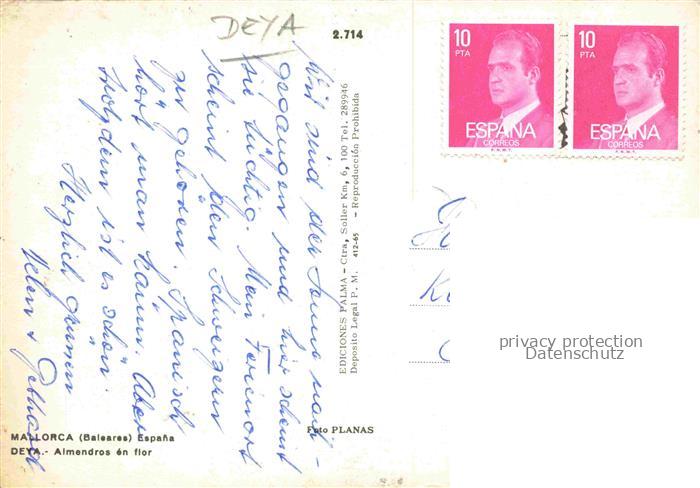 DEYA
2.714
10
PTA
ESPAÑA
CORREOS
F.N.M.T.
10
PTA
ESPAÑA
CORREOS
F.N.M.T.
Wir sind der Sonne nach-
gegangen und hier scheint
sie tüchtig. Mein Ferienort
scheint den Schweizern
zu gehören. Spanisch
hört man kaum. Aber
trotzdem ist es schön.
Herzlich grüssen
+ Gebhard
EDICIONES PALMA - Ctra, Soller Km, 6, 100 Tel. 289946
Deposito Legal P. M. 412-65 - Reproducción Prohibida
privacy protection
Datenschutz
Foto PLANAS
MALLORCA (Baleares) España
DEYA.- Almendros én flor